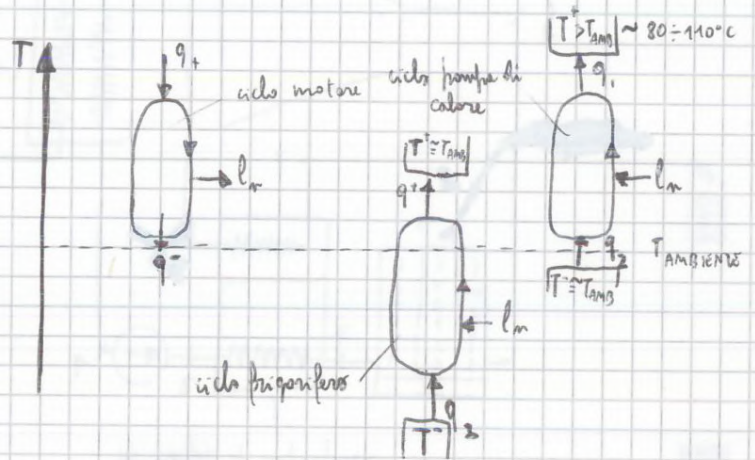 T
q+
ciclo motore
ln
q-
ciclo pompa di
calore
T+>TAMB ~ 80÷110°C
q1
ln
q2
TAMBIENTE
T-≅TAMB
T+≅TAMB
q+
ln
ciclo frigorifero
q2
T-